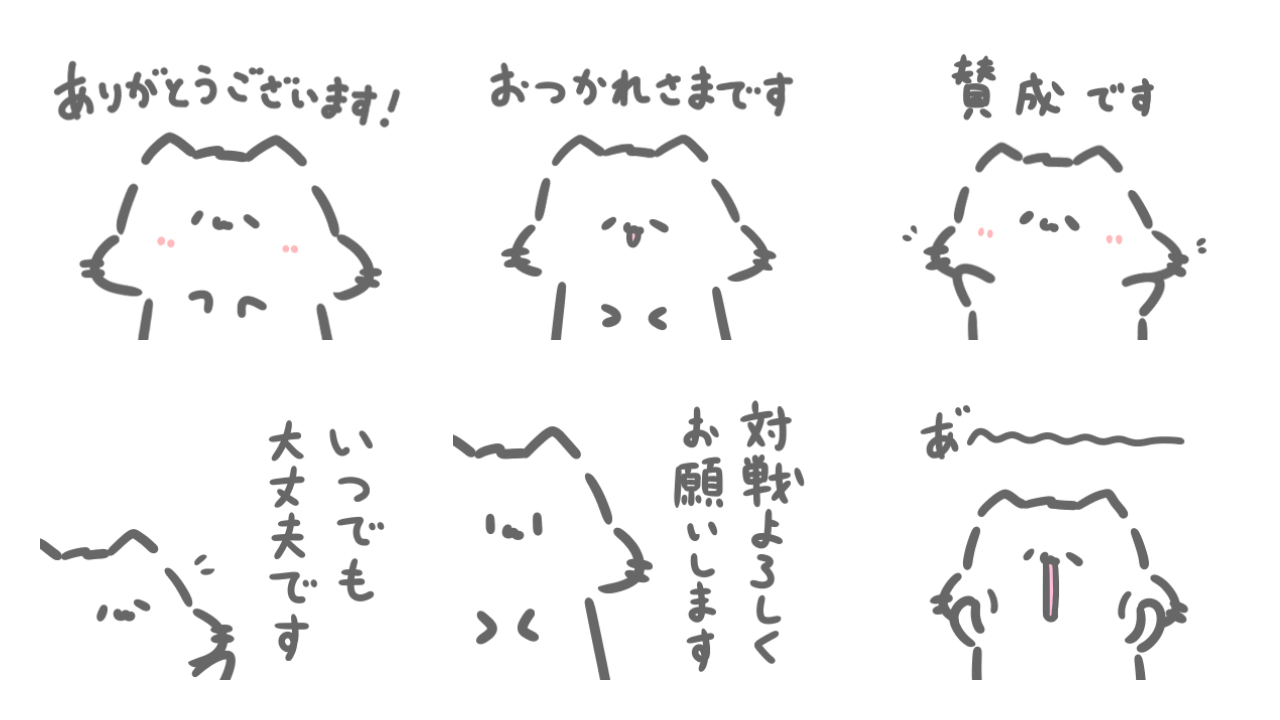 ありがとうございます!
おつかれさまです
賛成です
いつでも
大丈夫です
対戦よろしく
お願いします
あ゛〜